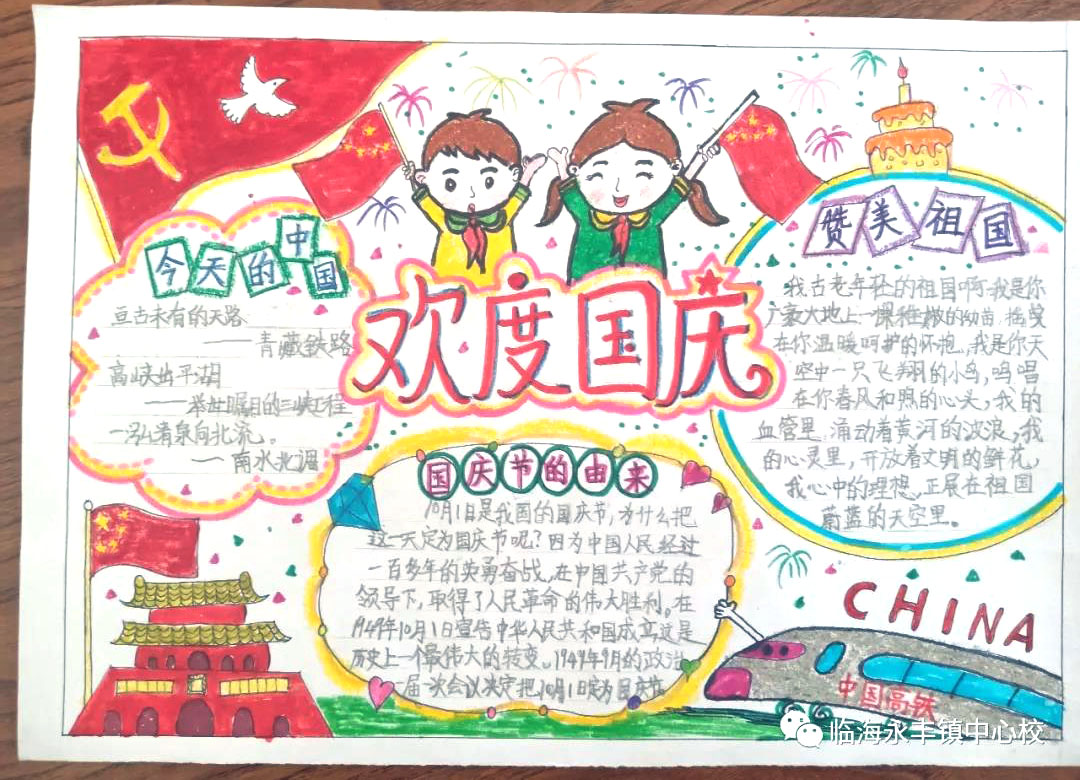 今天的中国
亘古未有的天路
——青藏铁路
高峡出平湖
——举世瞩目的三峡工程
一泓清泉向北流。
——南水北调
欢度国庆
赞美祖国
我古老年轻的祖国啊我是你
广袤大地上一棵稚嫩的幼苗,摇曳
在你温暖呵护的怀抱,我是你天
空中一只飞翔的小鸟,鸣唱
在你春风和照的心头,我的
血管里涌动着黄河的波浪,我
的心灵里,开放着文明的鲜花,
我心中的理想正展在祖国
蔚蓝的天空里。
国庆节的由来
10月1日是我国的国庆节,为什么把
这一天定为国庆节呢?因为中国人民经过
一百多年的英勇奋战,在中国共产党的
领导下,取得了人民革命的伟大胜利。在
1949年10月1日宣告中华人民共和国成立这是
历史上一个最伟大的转变。1949年9月的政治
一届一次会议决定把10月1日定为国庆节
CHINA
中国高铁
临海永丰镇中心校